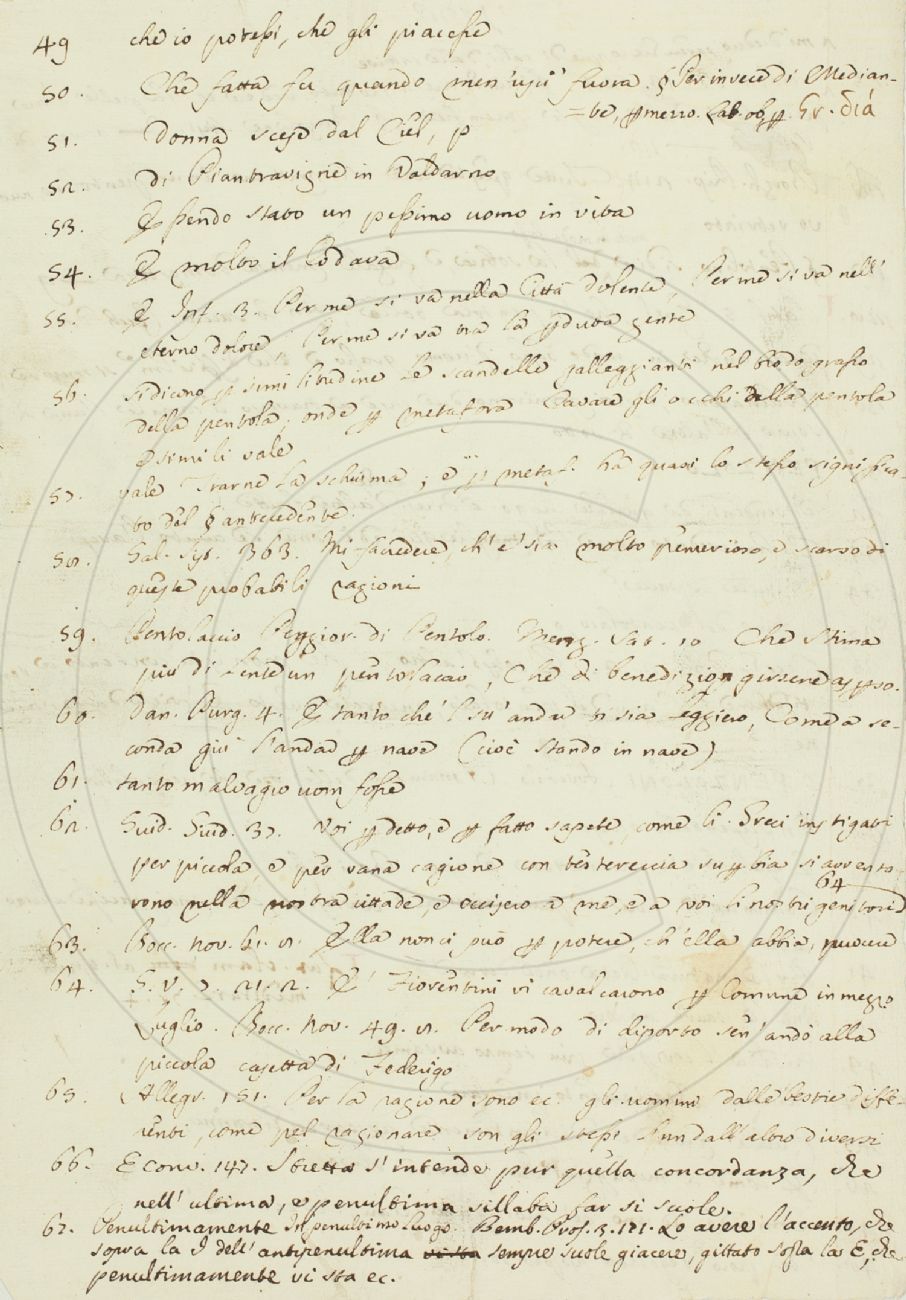 49 che io potessi, che gli piacesse
50. Che fatta fu quando men'uscì fuora. § Per invece di Median-
=te, p mezzo. Lat. ob, p Gr. διά
51. Donna scese dal Ciel, p
52. di Piantravigne in Valdarno
53. Essendo stato un pessimo uomo in vita
54. E molto il lodava
55. E Inf. 3. Per me si va nella Città dolente, Per me si va nell'
eterno dolore, Per me si va tra la pduta gente
56. si dicono p similitudine le scandelle galleggianti nel brodo grasso
della pentola, onde p metafora Cavare gli occhi della pentola
e simili vale
57. vale Trarne la schiuma; e p metaf. ha quasi lo stesso significa-
to del § antecedente.
58. Gal. Sys. 363. Mi fa credere, ch'e' sia molto penurioso, e scarso di
queste probabili ragioni
59. Pentolaccio Peggior. di Pentolo. Menz. Sat. 10 Che stima
più di lente un pentolaccio, Che di benedizion girsene asperso.
60. Dan. Purg. 4. E tanto che 'l su' andar ti sia leggiero, Come a se-
conda giù l'andar p nave (cioè stando in nave)
61. tanto malvagio uom fosse
62. Guid. Guid. 37. Voi p detto, e p fatto sapete, come li Greci instigati
per piccola, e per vana cagione con testereccia supbia si avvento-
rono nella nostra cittade, e occisero a me, e a voi li nostri genitori
64
63. Bocc. nov. 41. Ella non ci può p potere, ch'ella abbia, nuocere
64. G. V. 7. 21. 2. E' Fiorentini vi cavalcarono p Comune in mezzo
Luglio. Bocc. Nov. 49. Per modo di diporto sen'andò alla
piccola casetta di Federigo
65. Allegr. 151. Per la ragione sono ec. gli uomini dalle bestie diffe-
renti, come pel ragionare son gli stessi l'un dall'altro diversi
66. E conv. 147. Stretta s'intende pur quella concordanza, che
nell'ultima, e penultima sillaba far si suole.
67. Penultimamente In penultimo luogo. Bemb. Pros. 2. 171. Lo avere l'accento, che
sopra la I dell'antipenultima sempre suole giacere, gittato sopra la E, che
penultimamente vi sta ec.